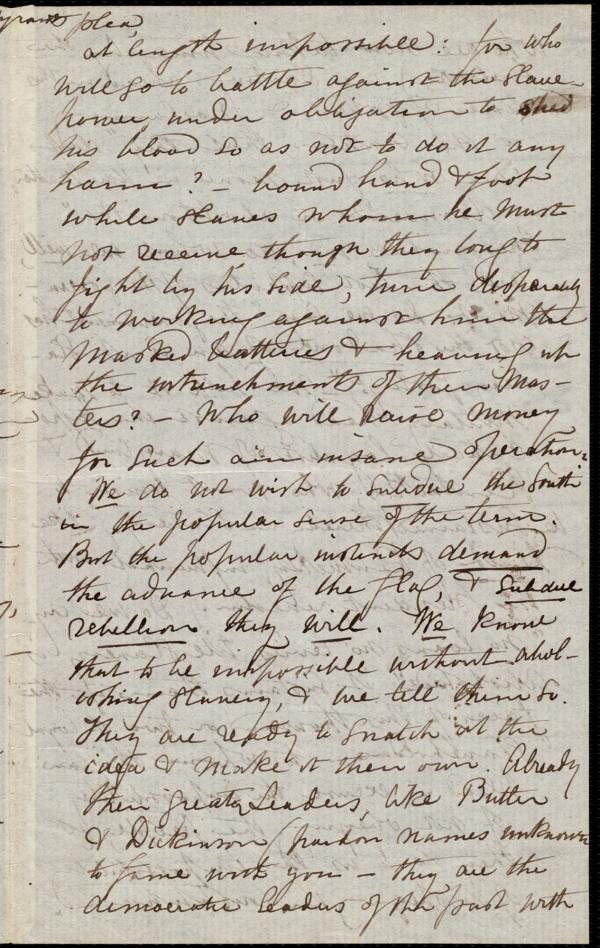 plea,
at length impossible: for who
will go to battle against the Slave-
power under obligation to shed
his blood so as not to do it any
harm? – bound hand & foot
while slaves whom he must
not receive though they long to
fight by his side, turn desperately
to working against him the
Masked batteries & heaving up
the intrenchments of their Mas-
ters? – Who will raise money
for such an insane operation.
We do not wish to subdue the South
in the popular sense of the term.
But the popular instincts demand
the advance of the flag, & subdue
rebellion they will. We know
that to be impossible without abol-
ishing slavery, & we tell them so.
They are ready to snatch at the
idea & make it their own. Already
their great Leaders, like Butler
& Dickinson (pardon names unknown
to fame with you – they are the
democratic leaders of the past with